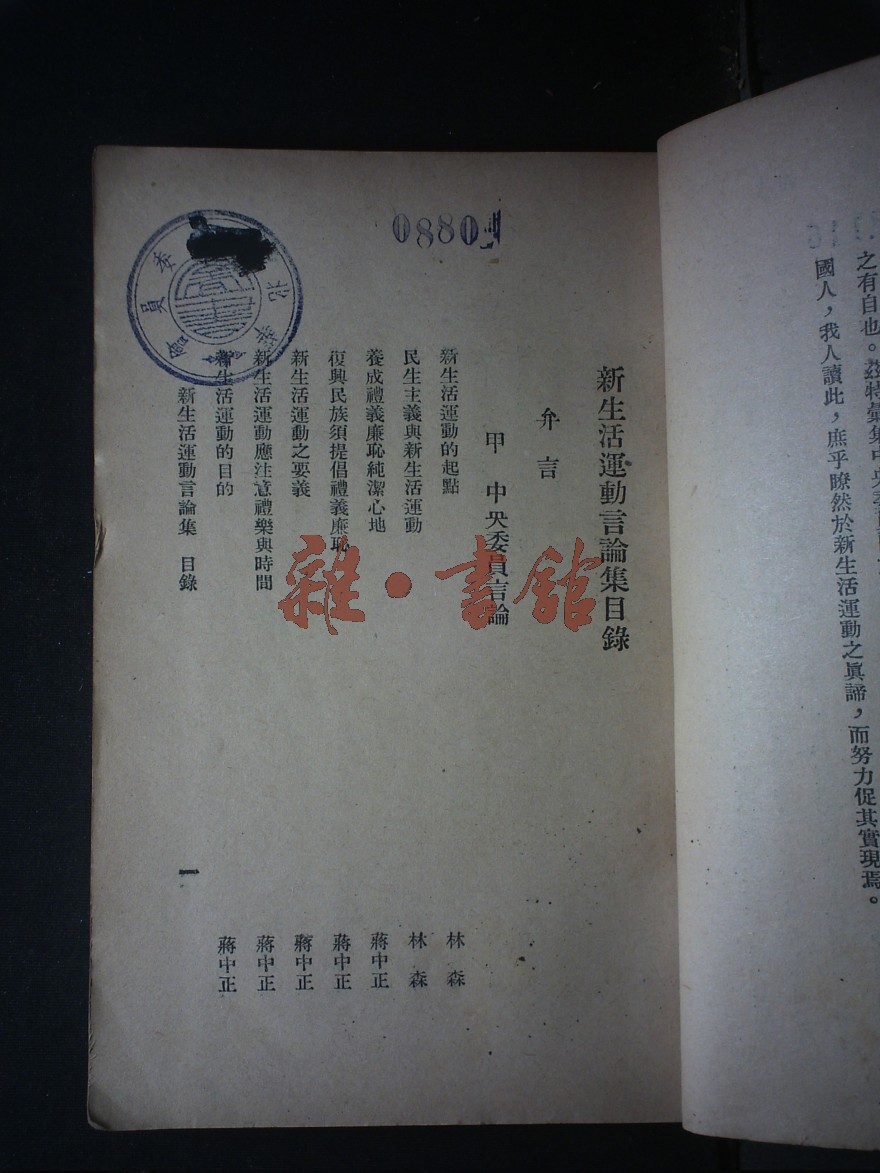 之有自也。茲特彙集中央
國人，我人讀此，庶乎瞭然於新生活運動之眞諦，而努力促其實現焉。
0880
新生活運動言論集目錄
弁言
甲 中央委員言論
新生活運動的起點 林森
民生主義與新生活運動 林森
養成禮義廉恥純潔心地 蔣中正
復興民族須提倡禮義廉恥 蔣中正
新生活運動之要義 蔣中正
新生活運動應注意禮樂與時間 蔣中正
新生活運動的目的 蔣中正
新生活運動言論集 目錄
一
北華
委員會
雜·書館